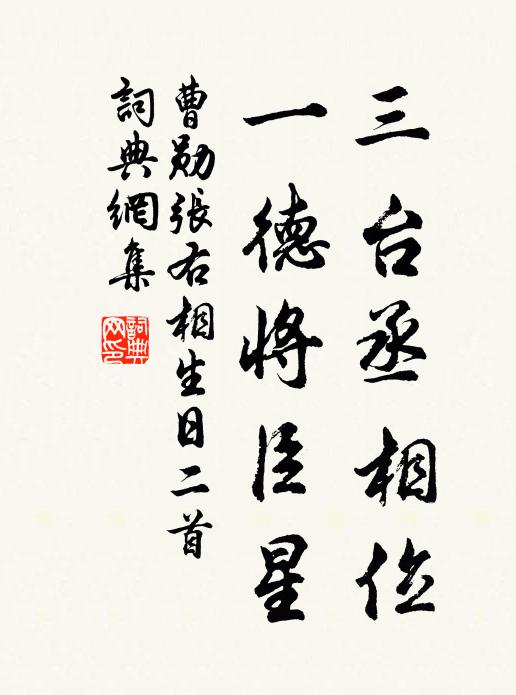 三台丞相位
一德将臣星
曹勋張右相生日二首
詞典網集
詞典網印